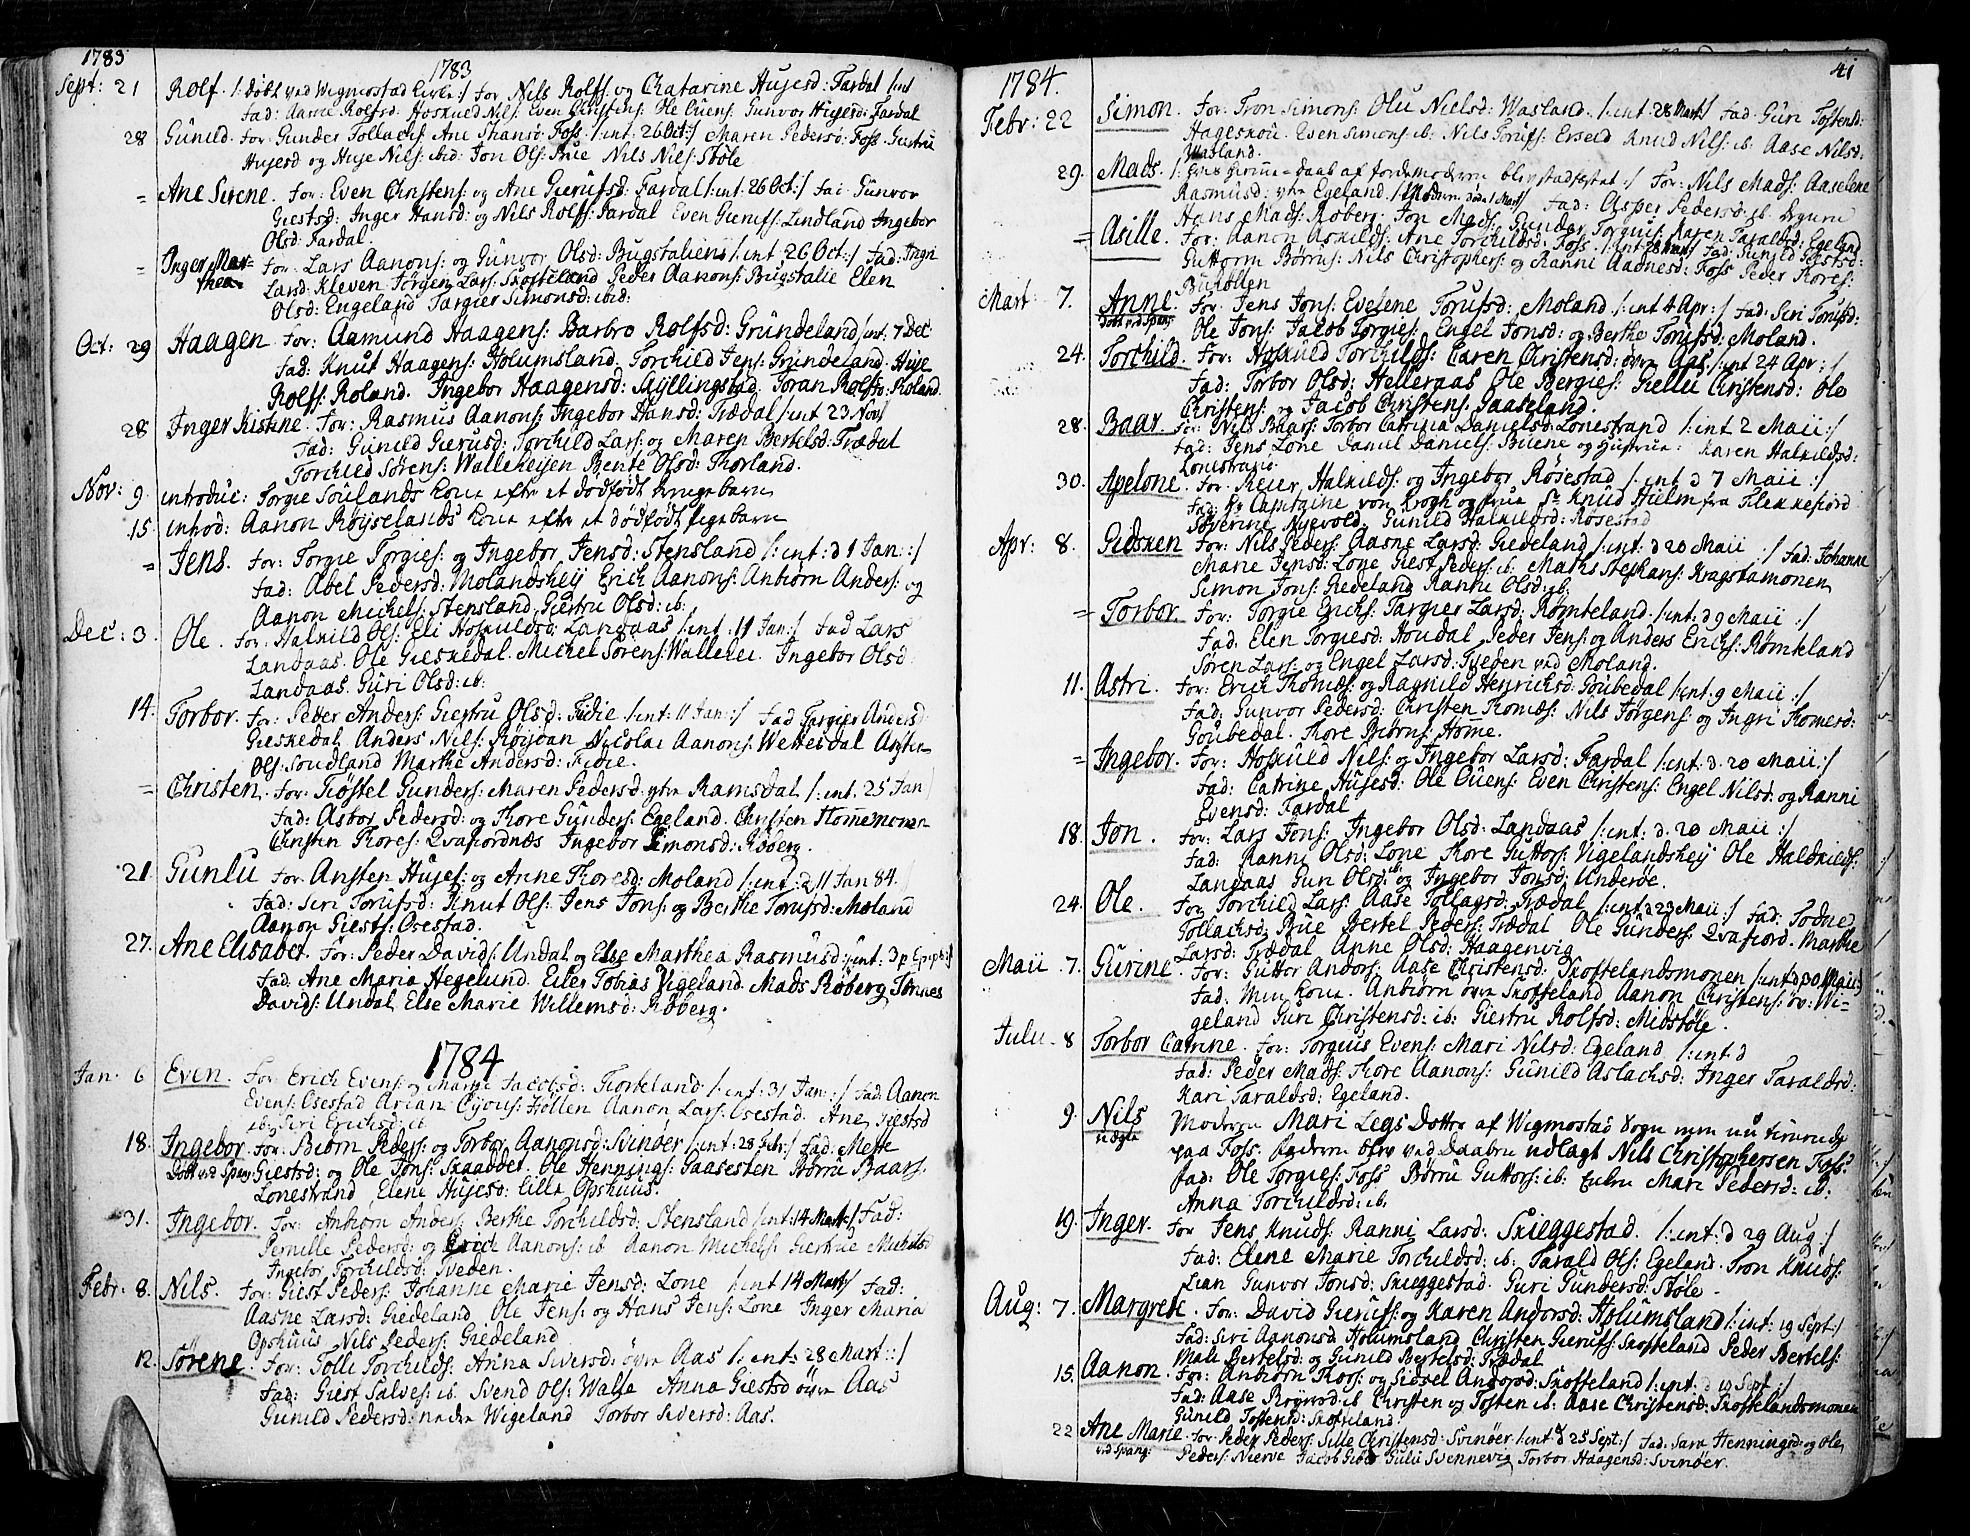 1783
1783
Sept: 21 Rolf. /: døbt ved Wigmostad Kirke :/ For Nils Rolfs: og Chatarine Hujesd: Fardal /: int
Fad: Aanne Rolfsd: Hoskued Nils: Even Christens: Ole Ouens: Gunvor Hujesd: Fardal
28 Gunild. For: Gunder Tollachs: Ane Foss /: int: 26 Oct :/ Maren Pedersd: Foss Giertru
Hujesd og Huje Nils: ibid: Jon Ols: Nils Nils: Støle
= Ane Sirene. For: Even Christens: og Ane Gierulfsd: Fardal /: int: 26 Oct :/ Fad: Gunvor
Giestsd: Inger Hansd: og Nils Rolfs: Fardal Even Gierulfs: Lindland Ingebor
Olsd: Fardal.
= Inger Mar= For. Lars Aanons: og Gunvor Olsd: Bugstalien /: int 26 Oct :/ Fad: Ingri
thea. Larsd: Kleven Jørgen Lars: Skofteland Peder Aanons: Bugstalie Elen
Olsd: Engeland Targier Simonsd: ibid:
Oct: 29 Haagen For: Aamund Haagens: Barbro Rolfsd: Grundeland /: int: 7 Dec
Fad: Knut Haagens: Holumsland. Torchild Jens: Grundeland. Huje
Rolfs: Roland. Ingebor Haagensd: Skyllingstad. Toran Rolfsd: Roland.
28 Inger Kistine. For: Rasmus Aanons: Ingebor Hansd: Trædal /: int 23 Nov /
Fad: Gunild Gierusd: Torchild Lars: og Maren Bertelsd: Trædal
Torchild Sørens: Walleheijen Bente Olsd: Thorland.
Nov: 9. introduc: Torgie Soulands kone efter et dødfødt drengebarn
15 introd: Aanon Røijselands kone efter et dødfødt pigebarn
= Jens. For: Torgie Torgies: og Ingebor Jensd: Stensland /: int: d 1 Jan: :/
Fad: Abel Pedersd: Molandsheij Erich Aanons: Anbiørn Anders: og
Aanon Michels: Stensland Giertru Olsd: ib:
Dec: 3. Ole. For: Halkild Ols: Eli Hoskuldsd: Landaas /: int: 11 Jan: / Fad Lars
Landaas. Ole Gieskedal. Michel Sørens: Wallehei. Ingebor Olsd:
Landaas. Guri Olsd: ib:
14. Torbor. For: Peder Anders: Giertru Olsd: Fidie /: int: 11 Jan: / Fad Targier Andersd
Gieskedal Anders Nils: Røijdan Nicolai Aanons: Wettesdal
Ols: Soudland Marthe Andersd: Fidie.
= Christen. For: Tiøstel Gunders: Maren Pedersd: ytre Ramsdal /: int. 25 Jan /
Fad: Asbor Pedersd: og Thore Gunders: Egeland. Christen Hommemonen
Christen Thores: Qvafiordnæs Ingebor Simonsd: Røberg.
21 Gunlu For. Ansten Hujes: og Anne Thoresd: Moland /: int: d 11 Jan 84.
Fad: Siri Torufsd: Knut Ols: Jens Jons: og Berthe Torufsd: Moland
Aanon Giests: Osestad.
27. Ane Elisabet. For: Peder Davids: Undal og Else Marthea Rasmusd: /: int: D p Epiph: /
Fad. Ane Maria Hegelund. Eiler Tobias Vigeland. Mads Røberg Tønnes
Davids: Undal Else Marie Willemsd: Røberg.
1784
Jan. 6 Even. For: Erich Evens: og Marthe Jacobsd: Tiorkeland /: int: 31 Jan: :/ Fad: Aanon
Evens: Osestad Høllen Aanon Lars: Osestad Ane Giestsd
ib: Siri Erichsd: ib
18. Ingebor For: Biørn Peders: og Torbor Aanonsd: Svinøer /: int: 28 Febr: / Fad: Mette
Døbt ved Spang Giestsd: og Ole Jons: Skaaddet. Ole Hennings: Gaasesten Børru Baars:
Lonestrand Elene Hujesd: Lille Opshuus.
31. Ingebor. For: Anbiørn Anders: Berthe Torchildsd: Stensland /: int: 14 Mart: / Fad:
Pernille Pedersd: og Erich Aanons: ib Aanon Michels: Giertrue Michelsd
Ingebor Torchildsd: Sveden.
Febr: 8. Nils. For: Giest Peders: Johanne Marie Jensd: Lone /: int 14 Mart / Fad:
Aasne Larsd: Giedeland Ole Jens: og Hans Jens: Lone Inger Maria
Opshuus Nils Peders: Giedeland
12. Sørene. For: Tolli Torchilds: Anna Siversd: øvre Aas /: int: 28 Mart: :/
Fad: Giest Salves: ib. Svend Ols: Walle Anna Giestsd øvre Aas
Gunild Pedersd: nedre Wigeland Torbor Siversd: Aas.
41
1784.
Febr: 22 Simon. For: Tron Simons: Olu Nielsd: Wasland. /: int: 28 Mart / Fad: Guri Tostensd:
Hageskou. Even Simons ib: Nils Torufs: Erseld Knud Nils: ib. Aase Nilsd:
Wasland.
29. Mads. daab af Jordemoderen blev stadfæstet :/ For: Nils Mads: Aaselene
Rasmusd: ytre Egeland /: Moderen døde 1 Mart / Fad: Asper Pedersd: ib.
Hans Mads: Røberg. Jon Mads: Gunder Torguis: Karen Taraldsd: Egeland
= Asille. For: Aanon Askilds: Ane Torchildsd: Foss /: int 28 Mart / Fad: Gunild Giestsd:
Guttorm Børrus: Nils Christophers: og Ranni Aadnesd: Foss Peder Thores:
Buhollen
Mart 7. Anne For. Jens Jons: Evelene Torufsd: Moland /: int 4 Apr: / Fad: Siri Torufsd:
døbt ved Spang. Ole Jons: Jacob Torgies: Engel Jonsd: og Berthe Torufsd: Moland.
24. Torchild. For: Hoskuld Torchilds: Karen Christensd: øvre Aas /: int 24 Apr: /
Fad: Torbor Olsd: Helleraas Ole Bergies: Giellu Christensd: Ole
Christens: og Jacob Christens: Gaaseland.
28. Baar. For: Nils Baars: Torbor Catrina Danielsd: Lonestrand /: int 2 Maii :/
Fad: Jens Lone Daniel Daniels: Buene og Hustrue: Karen Halkildsd:
Lonestrand.
30. Apelone. For. Reier Halkilds: og Ingebor Røsestad /: int d 7 Maii :/
Fad: Hr Capitaine von Krogh og frue Sr Knud Hielm fra Flekkefiord
Søverine Nyevold. Gunild Halkildsd: Røsestad
Apr: 8. Gidsken For: Nils Peders: Aasne Larsd: Giedeland /: int: d 20 Maii :/ Fad: Johanne
Marie Jensd: Lone Giest Peders: ib: Mathis Stephans: Kragstamonen
Simon Jons: Giedeland Ranni Olsd: ib:
= Torbor. For: Torgie Erichs: Targier Larsd: Rømteland. /: int: d 9 Maii :/
Fad. Elen Torgiesd: Houdal Peder Jens: og Anders Erichs: Rømteland
Søren Lars: og Engel Larsd: Sveden ved Moland.
11. Astri. For: Erich Thomæs: og Ragnild Henrichsd: Goubedal /: int: 9 Maii :/
Fad: Gunvor Pedersd: Christen Thomæs: Nils Jørgens: og Ingri Thomesd:
Goubedal. Thore Biørns: Homme.
= Ingebor. For: Hoskuld Nils: og Ingebor Larsd: Fardal /: int: d. 20 Maii: /
Fad: Catrine Hujesd: Ole Ouens: Even Christens: Engel Nilsd: og Ranni
Evensd: Fardal
18. Jon. For: Lars Jons: Ingebor Olsd: Landaas /: int: d. 20 Maii :/
Fad: Ranni Olsd: Lone Thore Guttors: Vigelandsheij Ole Haldkilds:
Landaas Guri Olsd: ib: og Ingebor Jonsd: Underøe.
24. Ole. For Torchild Lars: Aase Tollagsd: Trædal /: int: d 23 Maii :/ Fad: Todne
Tollachsd: Bue Bertel Peders: Trædal Ole Gunders: Qvafiord. Marthe
Larsd: Trædal Anne Olsd: Haagenvig
Maii 7. Gurine. For: Guttor Andors: Aase Christensd: Skoftelandsmonen /: int: d 30 Maii:/
Fad: Min kone. Anbiørn øvre Skofteland Aanon Christens: øv: Wi=
geland Guri Christensd: ib: Giertru Rolfsd: Midstøle.
Julii 8 Torbor Catrine. For: Torguis Evens: Mari Nilsd: Egeland /: int d
Fad: Peder Mads: Thore Aanons: Gunild Aslachsd: Inger Taraldsd:
Kari Taraldsd: Egeland.
9. Nils Moderen Mari Legs Dotter af Wigmostad Sogn men nu tienende
uægte paa Foss. Faderen blev ved Daaben udlagt Nils Christophersen Foss.
Fad: Ole Torgies: Foss Børru Guttors: ib: Mari Pedersd: ib:
Anna Torchildsd: ib.
19. Inger. For Jens Knuds: Ranni Larsd: Skieggestad. /: int: d 29 Aug: /
Fad: Elene Marie Torchildsd: ib: Tarald Ols: Egeland. Tron Knuds:
Lian Gunvor Jonsd: Skieggestad Guri Gundersd: Støle.
Aug: 7. Margrete. For: David Gierulfs: og Karen Andorsd: Holumsland /: int: 19 Sept: /
Fad: Siri Aanonsd Holumsland Christen Gierulfs: Skofteland Peder Bertels:
Mali Bertelsd: og Gunild Bertelsd: Trædal
15. Aanon. For: Anbiørn Roers: og Sidsel Andorsd: Skofteland /: int. d 19 Sept: /
Fad: Aase ib Christen og Tosten ib: Aase Christensd: Skoftelandsmonen
Gunild Tostensd: Skofteland.
22 Ane Marie. For Peder Peders: Sille Christensd: Svinøer /: int d 25 Sept: / Fad: Sara Henningsd: og Ole
ved Spang: Peders: Nierve Jacob Giulu Svennevig Torbor Haagensd: Svinøer.